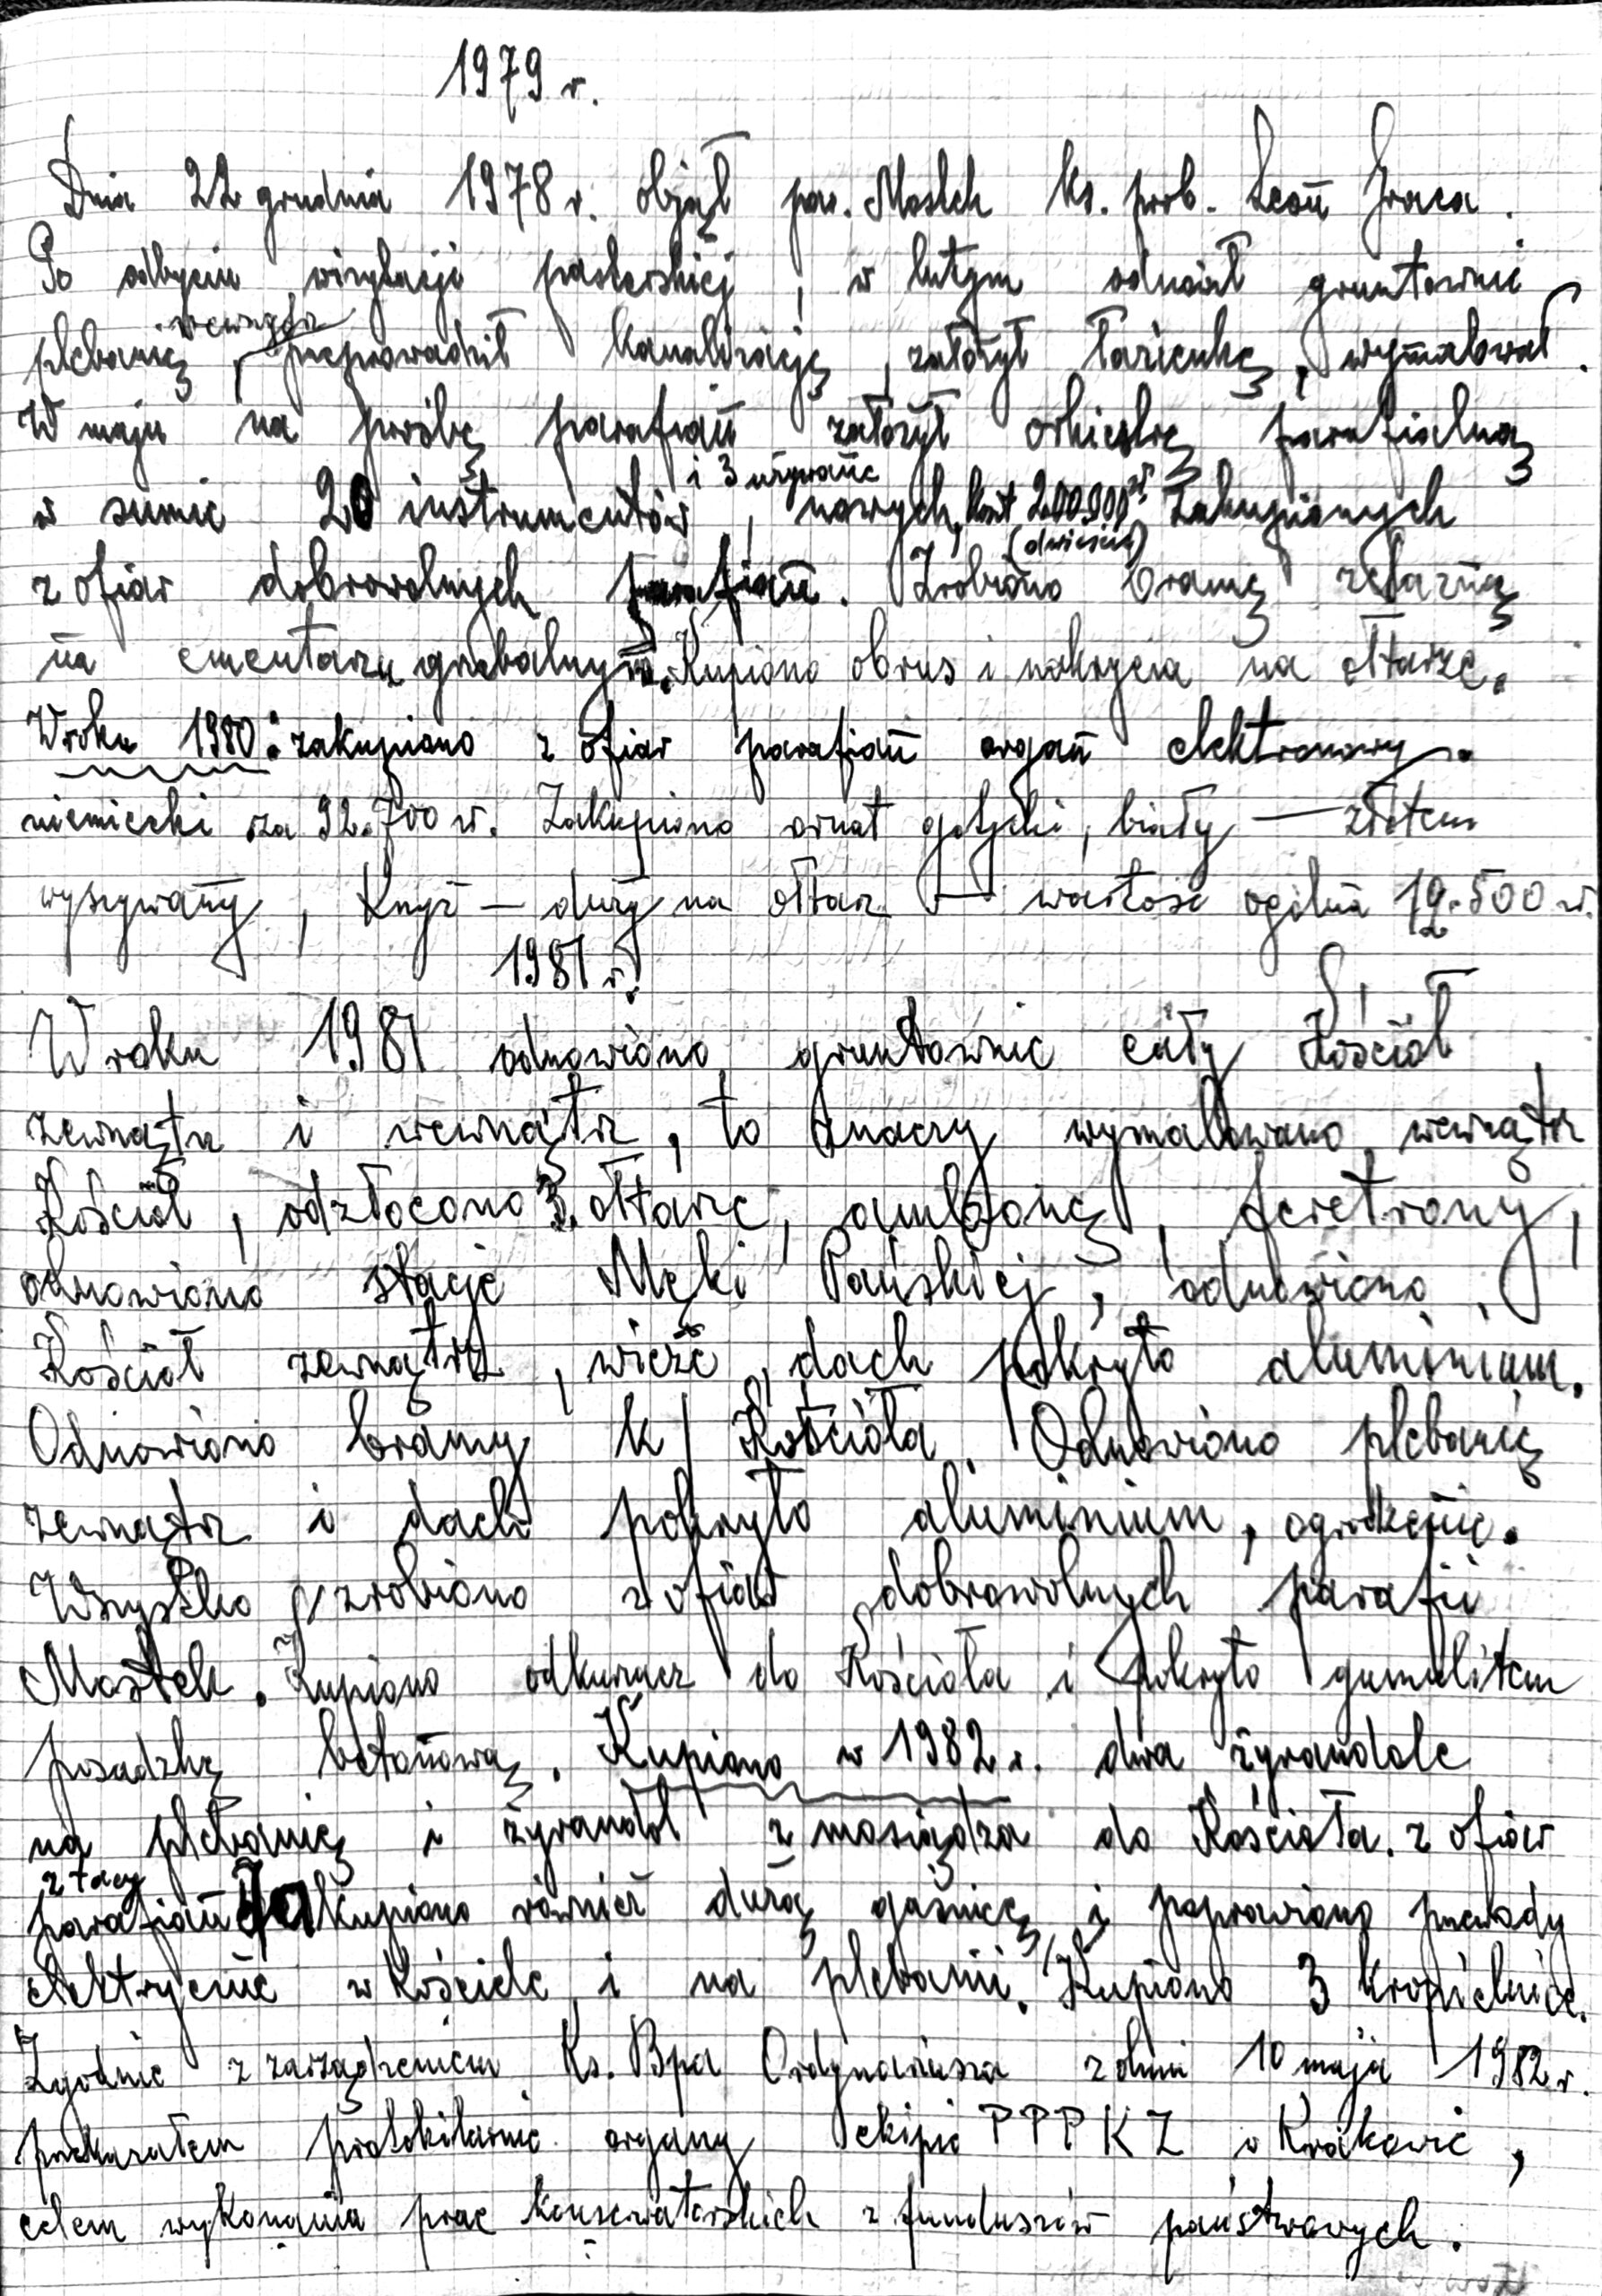 1979 r.
Dnia 22 grudnia 1978 r. objął par. Mostek ks. prob. Leon
Po odbyciu wizytacji pasterskiej, w lutym odnowił gruntownie
wewnątrz
plebanię, przeprowadził kanalizację, założył łazienkę, wymalował.
W maju na prośbę parafian założył orkiestrę parafialną
i 3 używane
w sumie 20 instrumentów, nowych, koszt 200.000 zł zakupionych
(dwieście)
z ofiar dobrowolnych parafian. Zrobiono bramę żelazną
na cmentarzu grzebalnym. Kupiono obrus i nakrycia na ołtarze.
W roku 1980: zakupiono z ofiar parafian organ elektronowy
niemiecki za 92.700 zł. Zakupiono ornat gotycki, biały — złotem
wyszywany, Krzyż — duży na ołtarz — wartość ogólna 12.500 zł.
1981 r.
W roku 1981 odnowiono gruntownie cały Kościół
zewnątrz i wewnątrz, to znaczy wymalowano wewnątrz
Kościół, odzłocono 3 ołtarze, ambonę, feretrony,
odnowiono stacje Męki Pańskiej, odnowiono
Kościół zewnątrz, wieże, dach pokryto aluminium.
Odnowiono bramy k/Kościoła. Odnowiono plebanię
zewnątrz i dach pokryto aluminium, ogrodzenie.
Wszystko zrobiono z ofiar dobrowolnych parafii
Mostek. Kupiono odkurzacz do Kościoła i pokryto gumolitem
posadzkę betonową. Kupiono w 1982 r. dwa żyrandole
na plebanię i żyrandol z mosiądza do Kościoła. z ofiar
z tacy
parafian Zakupiono również dużą gaśnicę i poprawiono przewody
elektryczne w Kościele i na plebanii. Kupiono 3 kropielnice.
Zgodnie z zarządzeniem Ks. Bpa Ordynariusza z dnia 10 maja 1982 r.
przekazałem protokilarnie organy ekipie PPPKZ w Krakowie,
celem wykonania prac konserwatorskich z funduszów państwowych.